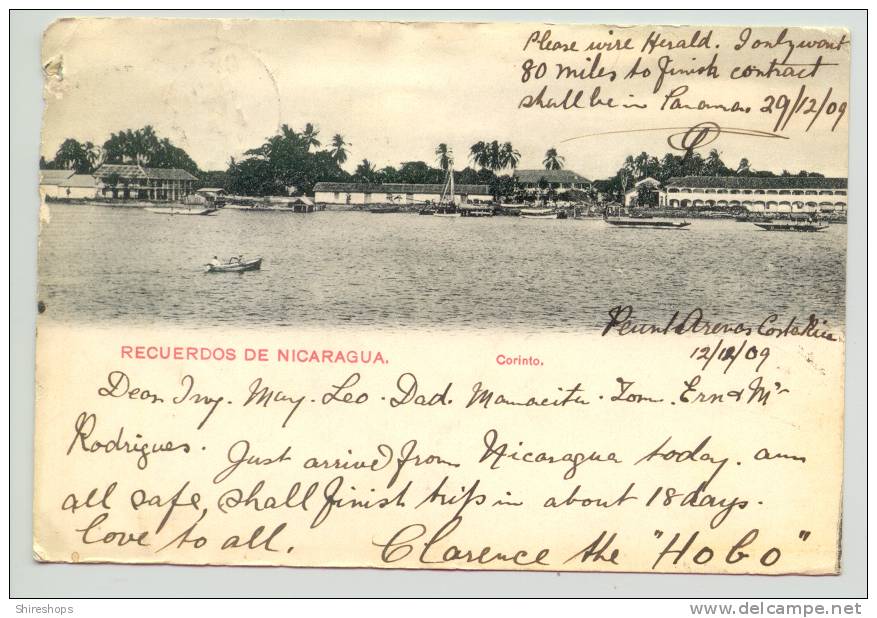 Please wire Herald. I only want
80 miles to finish contract
shall be in Panama 29/12/09
Punt Arenas Costa Rica
12/12/09
RECUERDOS DE NICARAGUA.
Corinto.
Dear Irv. May. Leo. Dad. Mamacita. Tom. Ern & Mr
Rodrigues. Just arrived from Nicaragua today. am
all safe, shall finish trip in about 18 days.
love to all. Clarence the "Hobo"
Shireshops
www.delcampe.net